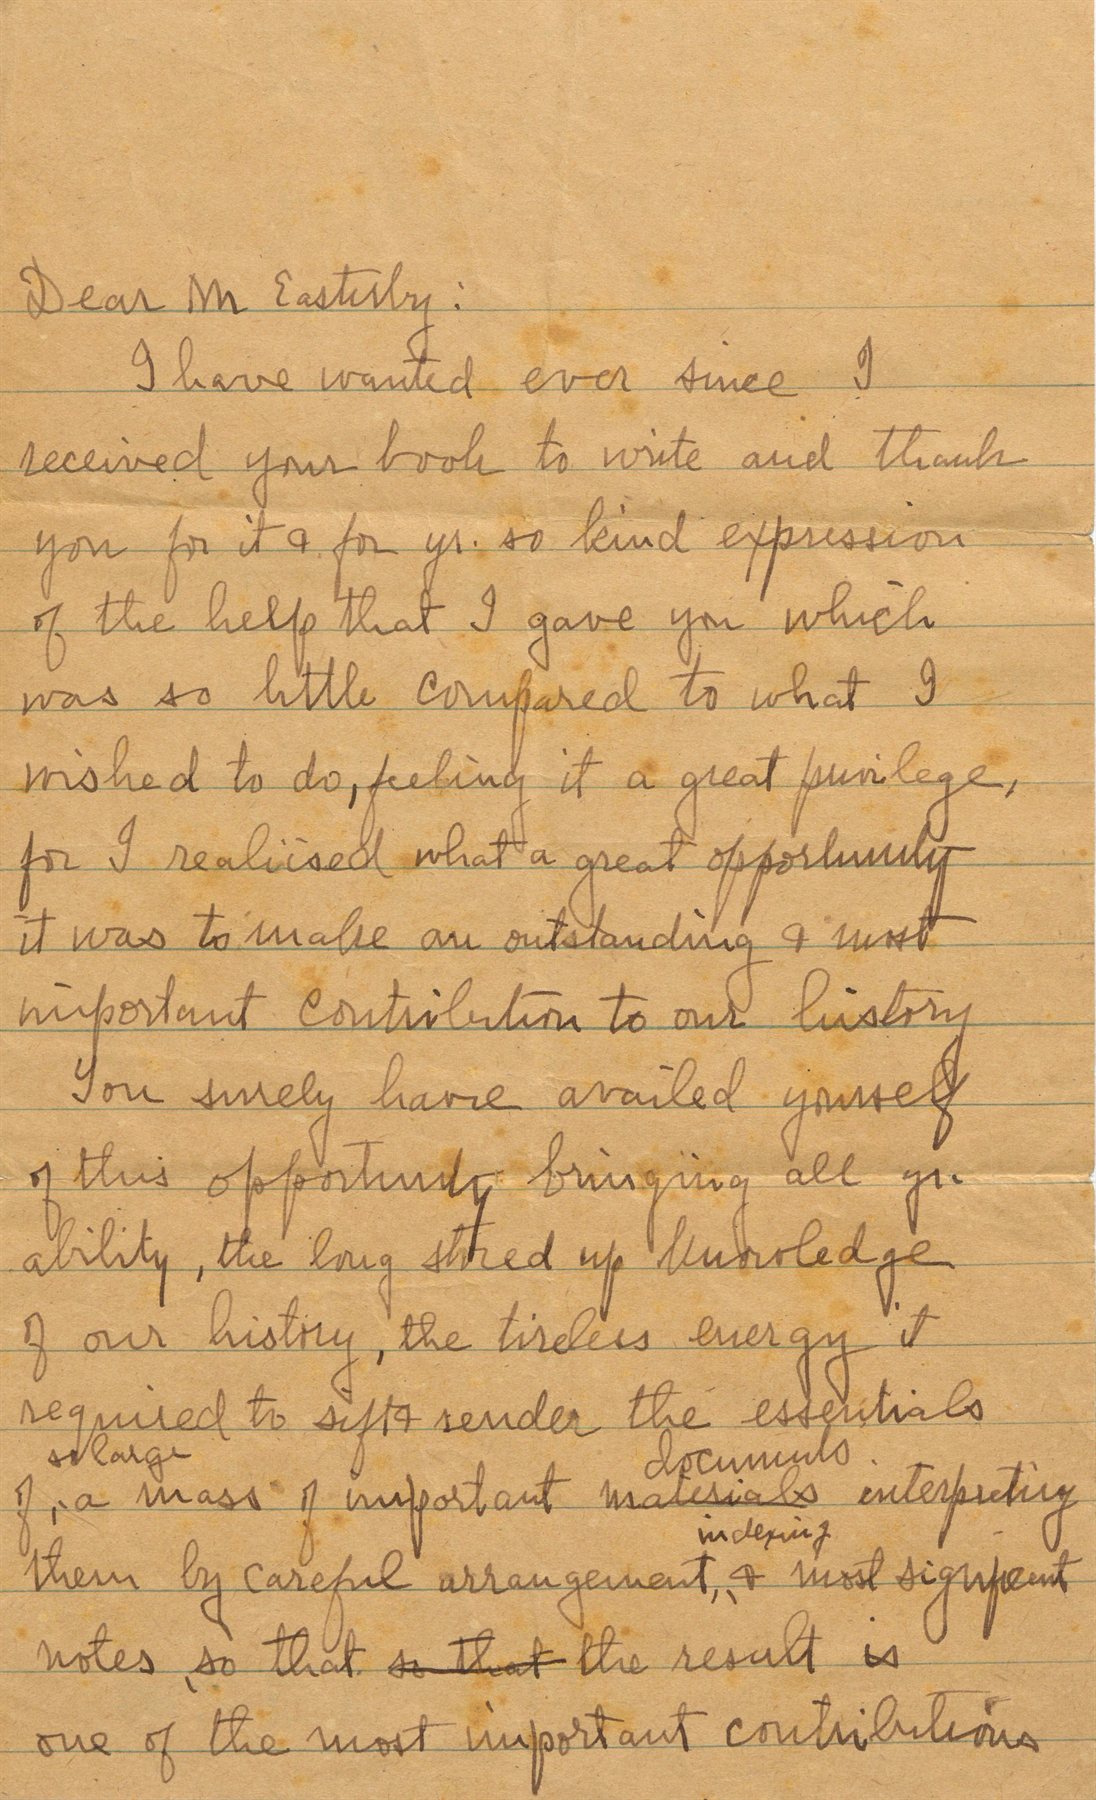 Dear Mr Easterby:
I have wanted ever since I
received your book to write and thank
you for it & for yr. so kind expression
of the help that I gave you which
was so little compared to what I
wished to do, feeling it a great privilege,
for I realised what a great opportunity
it was to make an outstanding & most
important contribution to our history
You surely have availed yourself
of this opportunity bringing all yr.
ability, the long stored up knowledge
of our history, the tireless energy it
required to sift & render the essentials
so large documents
of, a mass of important materials interpreting
indexing
them by careful arrangement, & most significant
notes, so that so that the result is
one of the most important contributions